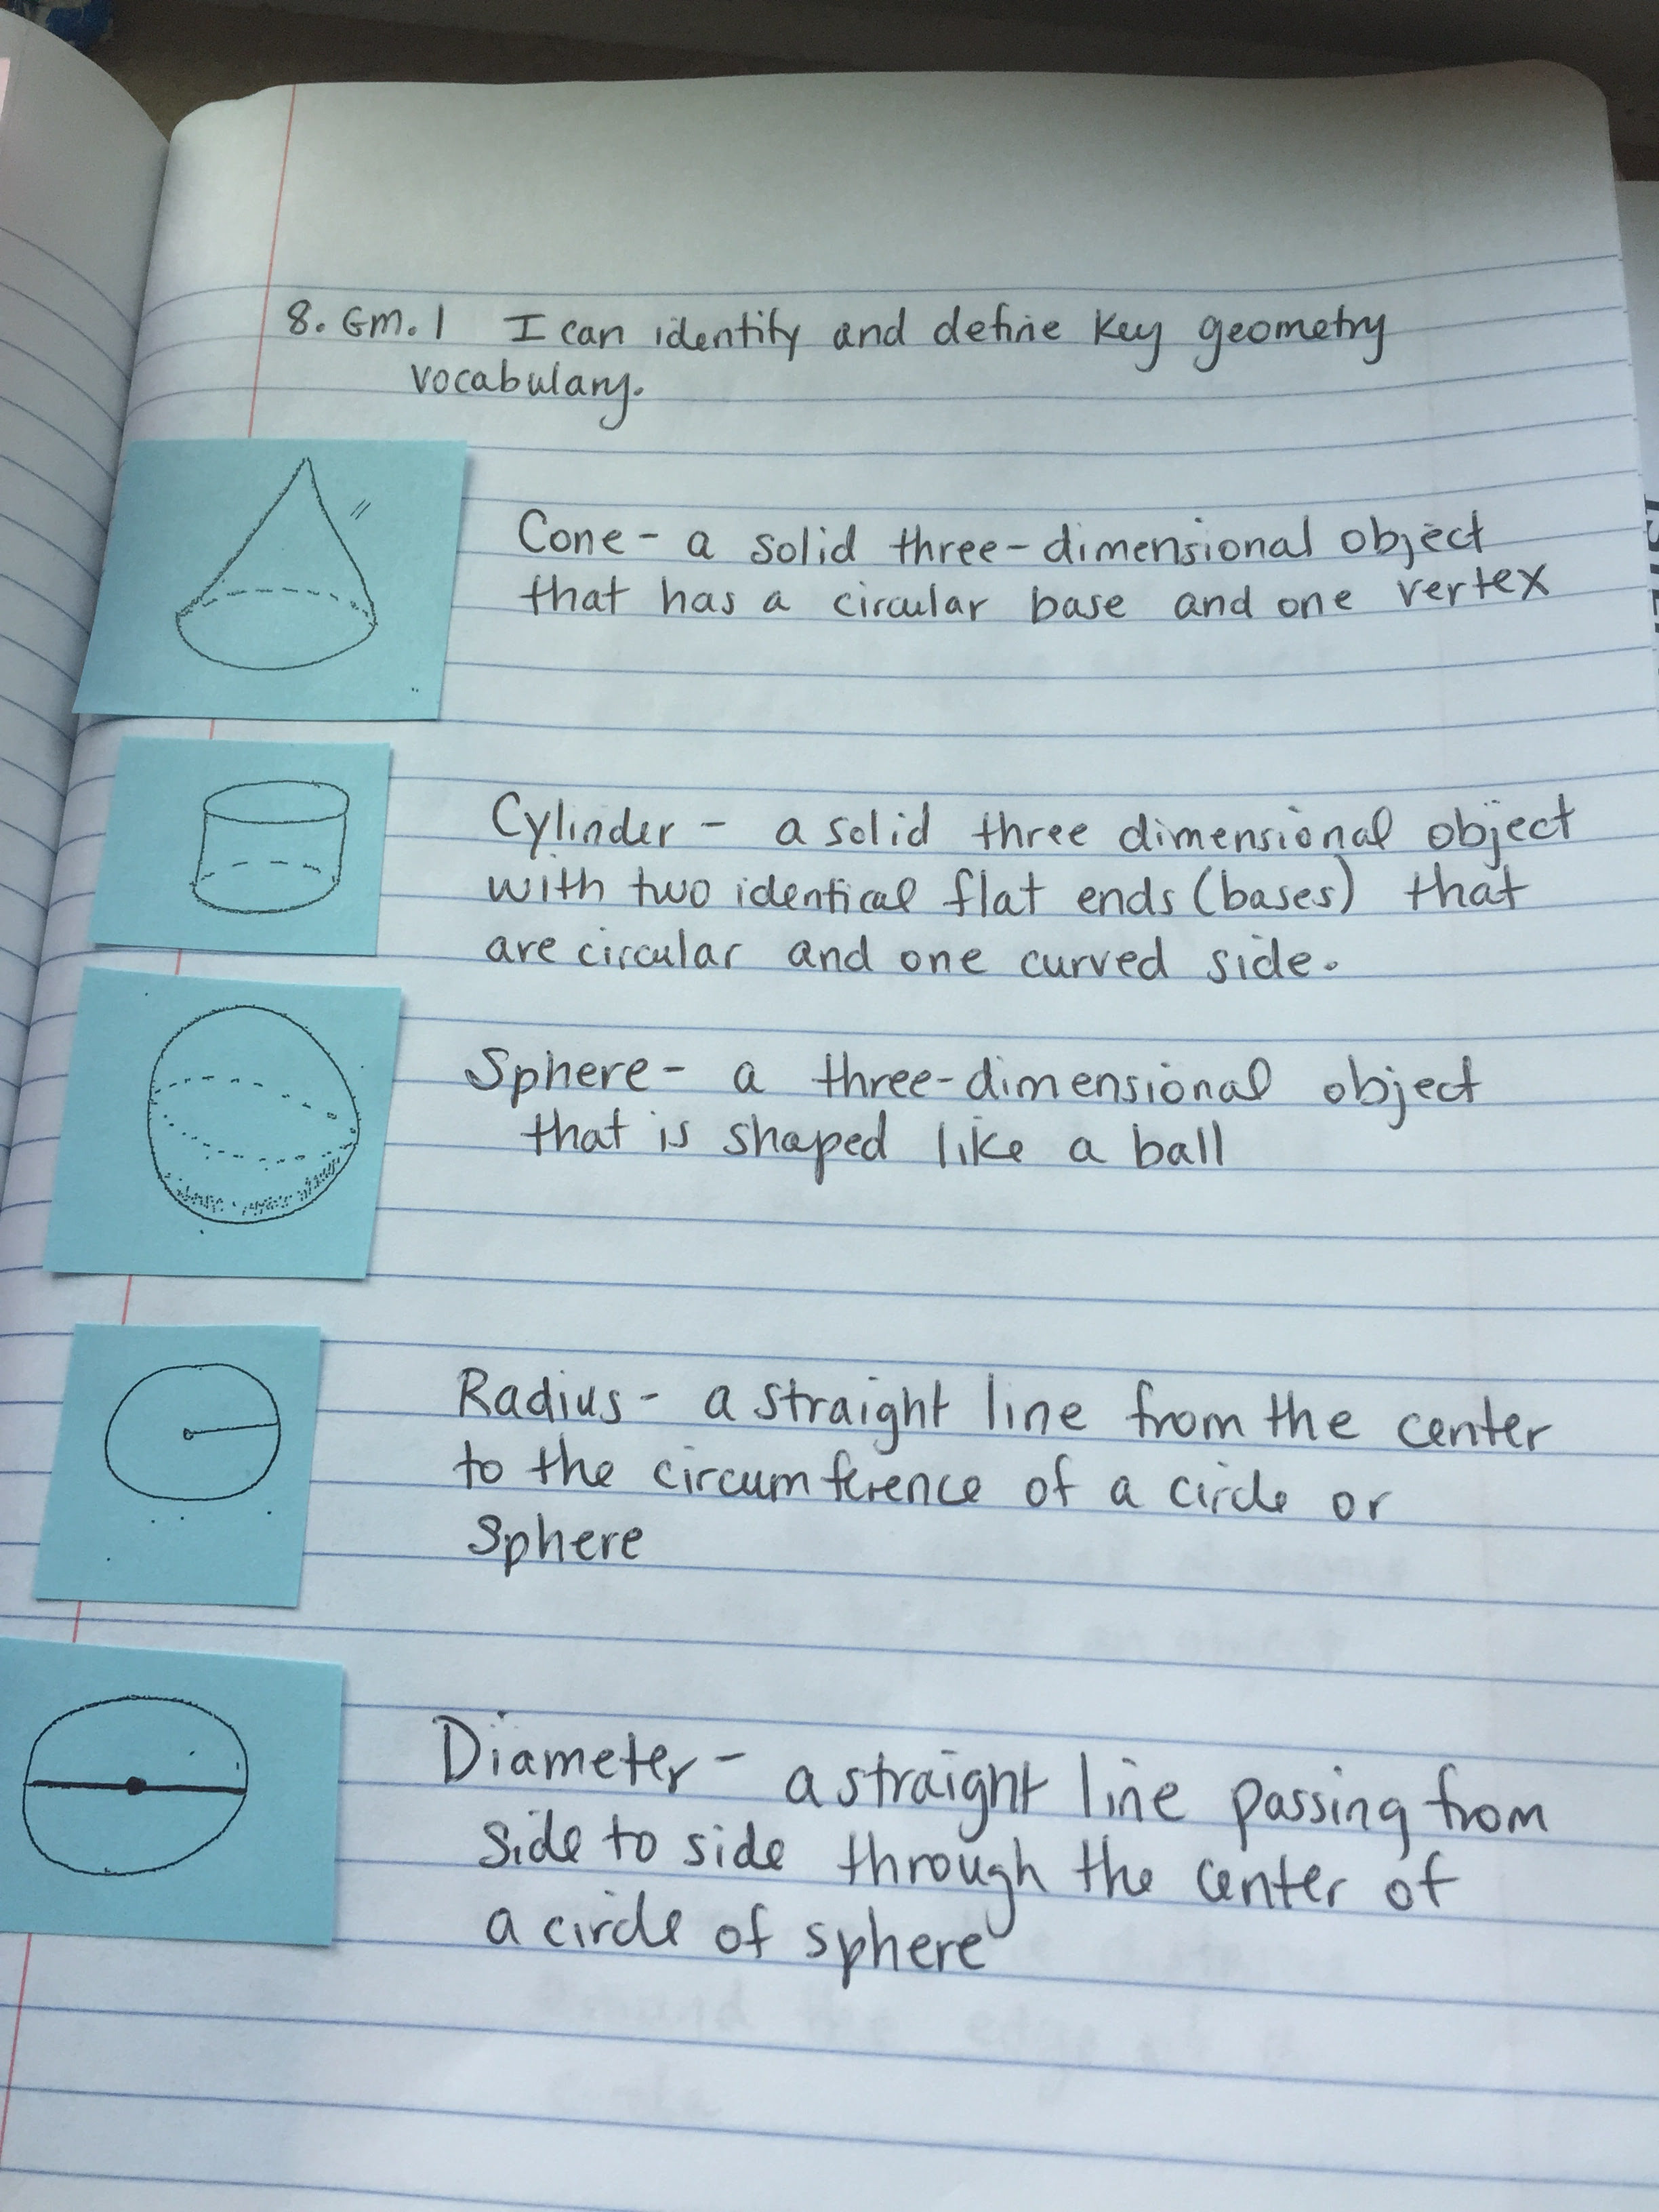 8. Gm. 1 I can identify and define key geometry
vocabulary.
Cone - a solid three-dimensional object
that has a circular base and one vertex
Cylinder - a solid three dimensional object
with two identical flat ends (bases) that
are circular and one curved side.
Sphere - a three-dimensional object
that is shaped like a ball
Radius - a straight line from the center
to the circumference of a circle or
Sphere
Diameter - a straight line passing from
side to side through the center of
a circle of sphere